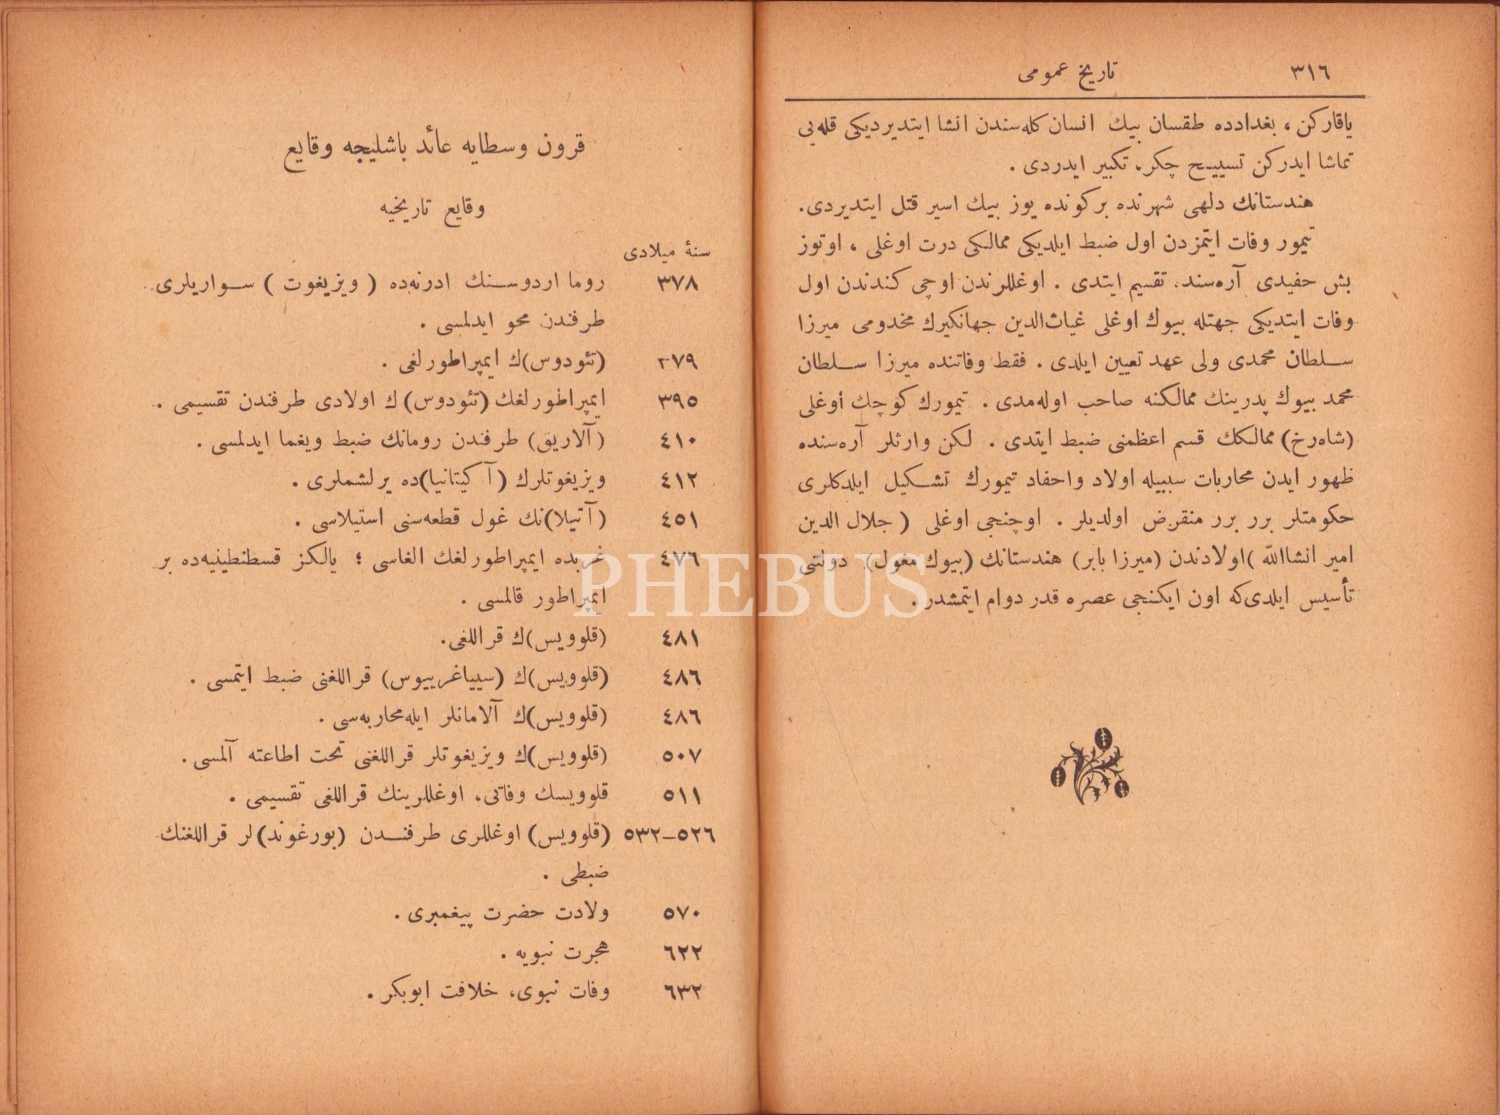 ٣١٦
تاريخ عمومى
ياقاركن ، بغدادده طقسان بيك انسان كله‌سندن انشا ايتديرديكى قله‌يى
تماشا ايدركن تسبيح چكر، تكبير ايدردى .
هندستانك دلهى شهرنده بركونده يوز بيك اسير قتل ايتديردى.
تيمور وفات ايتمزدن اول ضبط ايلديكى ممالكى درت اوغلى ، اوتوز
بش حفيدى آره‌سنده تقسيم ايتدى . اوغللرندن اوچى كندندن اول
وفات ايتديكى جهتله بيوك اوغلى غياث‌الدين جهانكيرك مخدومى ميرزا
سلطان محمدى ولى عهد تعيين ايلدى . فقط وفاتنده ميرزا سلطان
محمد بيوك پدرينك ممالكنه صاحب اوله‌مدى . تيمورك كوچك أوغلى
(شاه‌رخ) ممالكك قسم اعظمنى ضبط ايتدى . لكن وارثلر آره‌سنده
ظهور ايدن محاربات سببيله اولاد واحفاد تيمورك تشكيل ايلدكلرى
حكومتلر برر برر منقرض اولديلر . اوچنجى اوغلى ( جلال الدين
امير انشاالله )اولادندن (ميرزا بابر) هندستانك (بيوك مغول) دولتنى
تأسيس ايلدى‌كه اون ايكنجى عصره قدر دوام ايتمشدر .
قرون وسطايه عائد باشليجه وقايع
وقايع تاريخيه
سنهٔ ميلادى
٣٧٨ روما اردوسنك ادرنه‌ده ( ويزيغوت ) سواريلرى
طرفندن محو ايدلمسى .
٣٧٩ (تئودوس)ك ايمپراطورلغى .
٣٩٥ ايمپراطورلغك (تئودوس) ك اولادى طرفندن تقسيمى .
٤١٠ (آلاريق) طرفندن رومانك ضبط ويغما ايدلمسى .
٤١٢ ويزيغوتلرك (آكيتانيا)ده يرلشملرى .
٤٥١ (آتيلا)نك غول قطعه‌سنى استيلاسى .
٤٧٦ غربده ايمپراطورلغك الغاسى ؛ يالكز قسطنطينيه‌ده بر
ايمپراطور قالمسى .
٤٨١ (قلوويس)ك قراللغى.
٤٨٦ (قلوويس)ك (سيياغرييوس) قراللغنى ضبط ايتمسى .
٤٨٦ (قلوويس)ك آلامانلر ايله‌محاربه‌سى .
٥٠٧ (قلوويس)ك ويزيغوتلر قراللغنى تحت اطاعته آلمسى .
٥١١ قلوويسك وفاتى، اوغللرينك قراللغى تقسيمى .
٥٢٦–٥٣٢ (قلوويس) اوغللرى طرفندن (بورغوند)لر قراللغنك
ضبطى .
٥٧٠ ولادت حضرت پيغمبرى .
٦٢٢ هجرت نبويه .
٦٣٢ وفات نبوى، خلافت ابوبكر .
PHEBUS